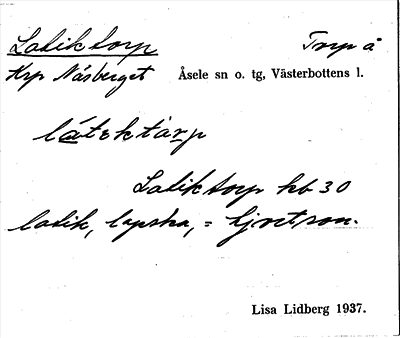 Ladiktorp Torp å
Krp Näsberget Åsele sn o. tg, Västerbottens l.
látektàrp
Ladiktorp kb 30
ladik, lapska, =
Lisa Lidberg 1937.